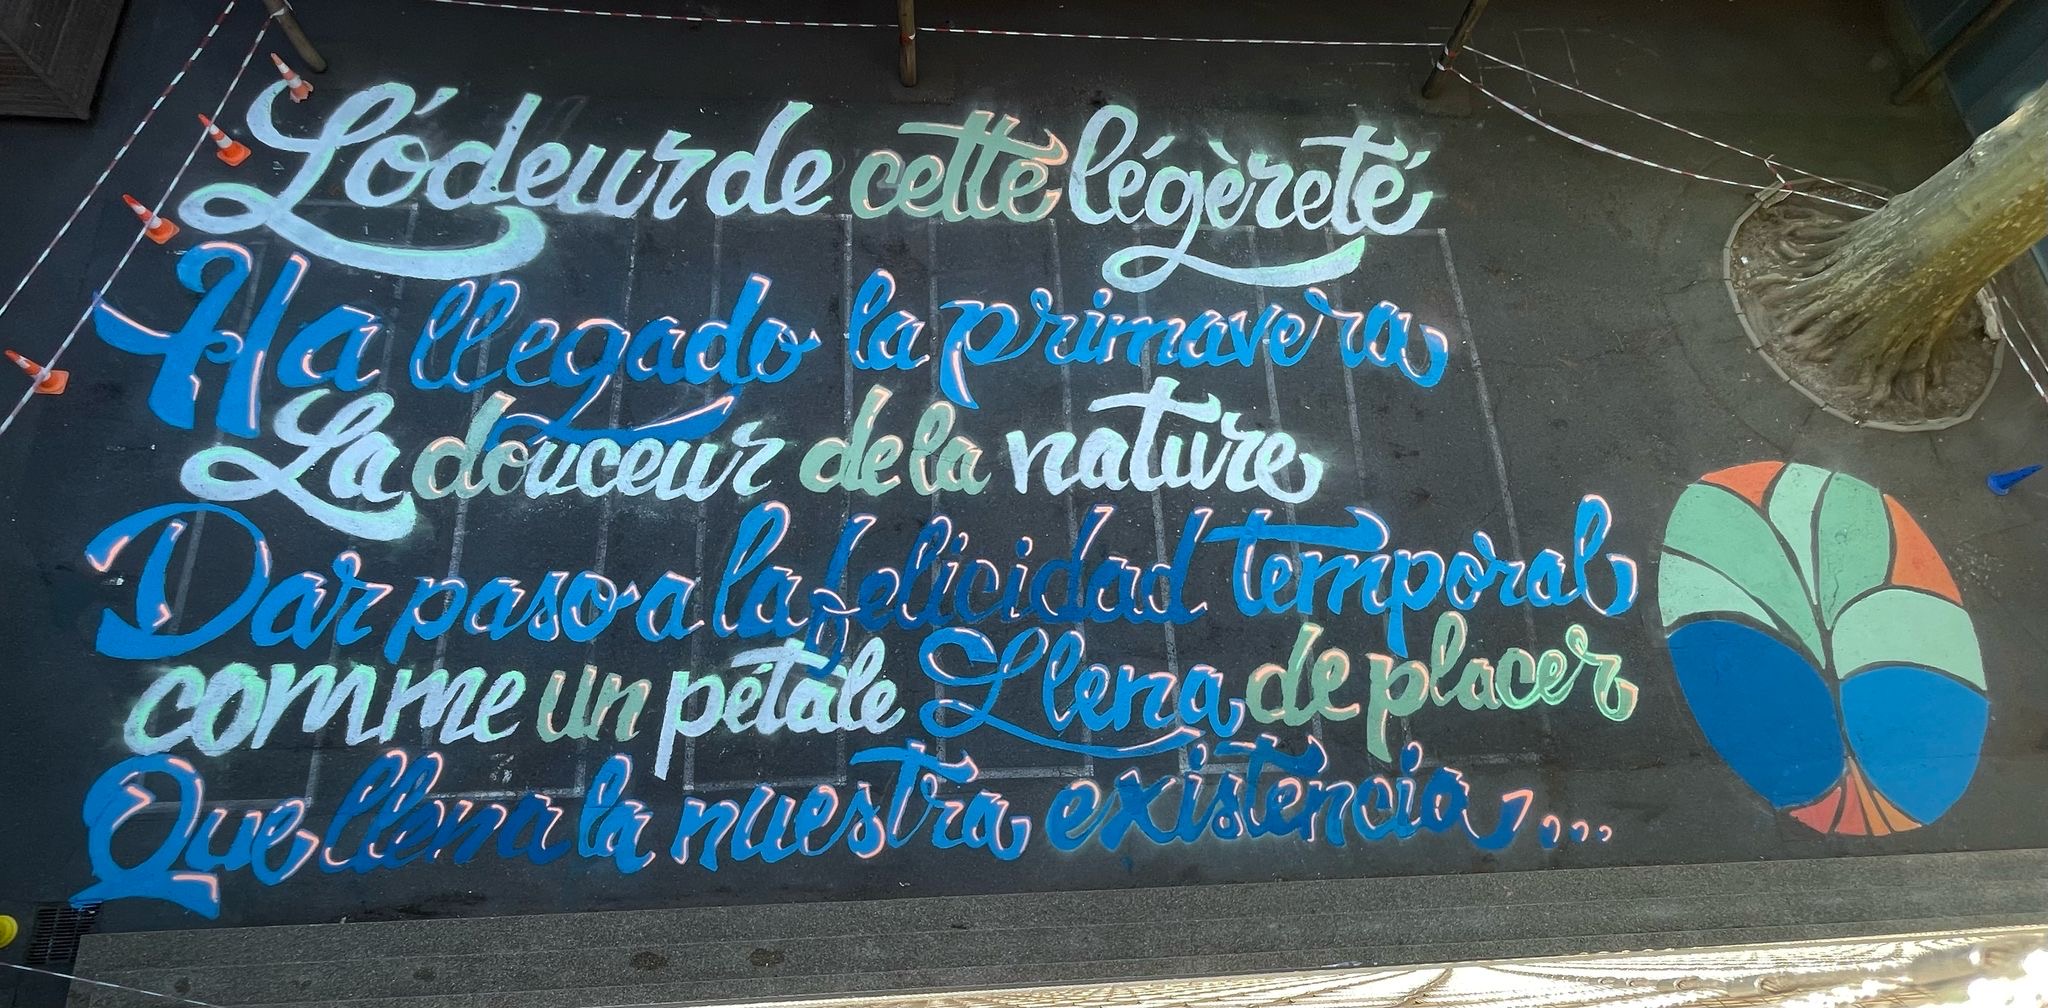 L'ódeur de cette légèreté
Ha llegado la primavera
La douceur de la nature
Dar paso a la felicidad temporal
comme un pétale Llena de placer
Que llena la nuestra existencia...